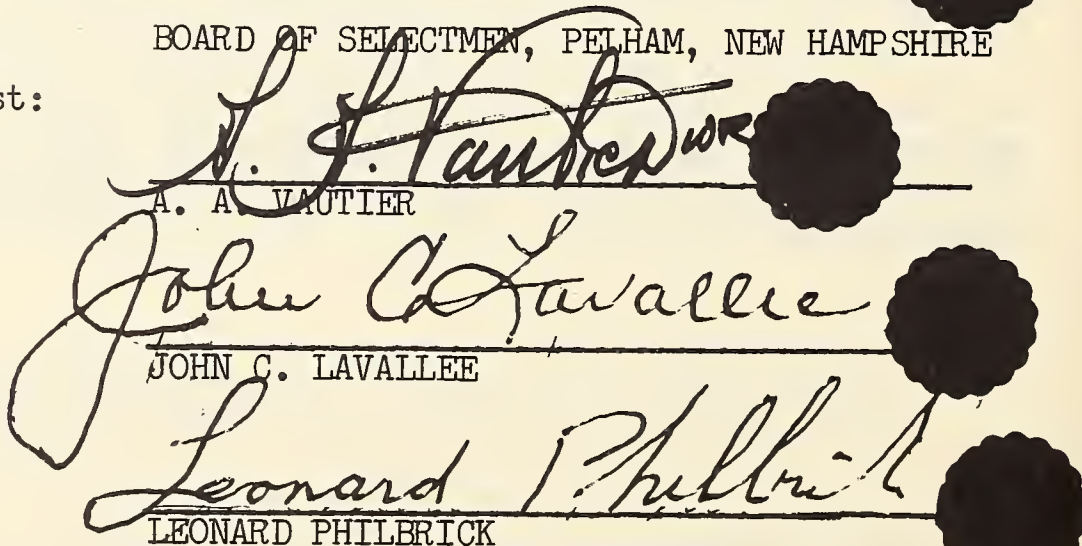 BOARD OF SELECTMEN, PELHAM, NEW HAMPSHIRE
st:
A. A. VAUTIER
John C Lavallee
JOHN C. LAVALLEE
Leonard Philbrick
LEONARD PHILBRICK